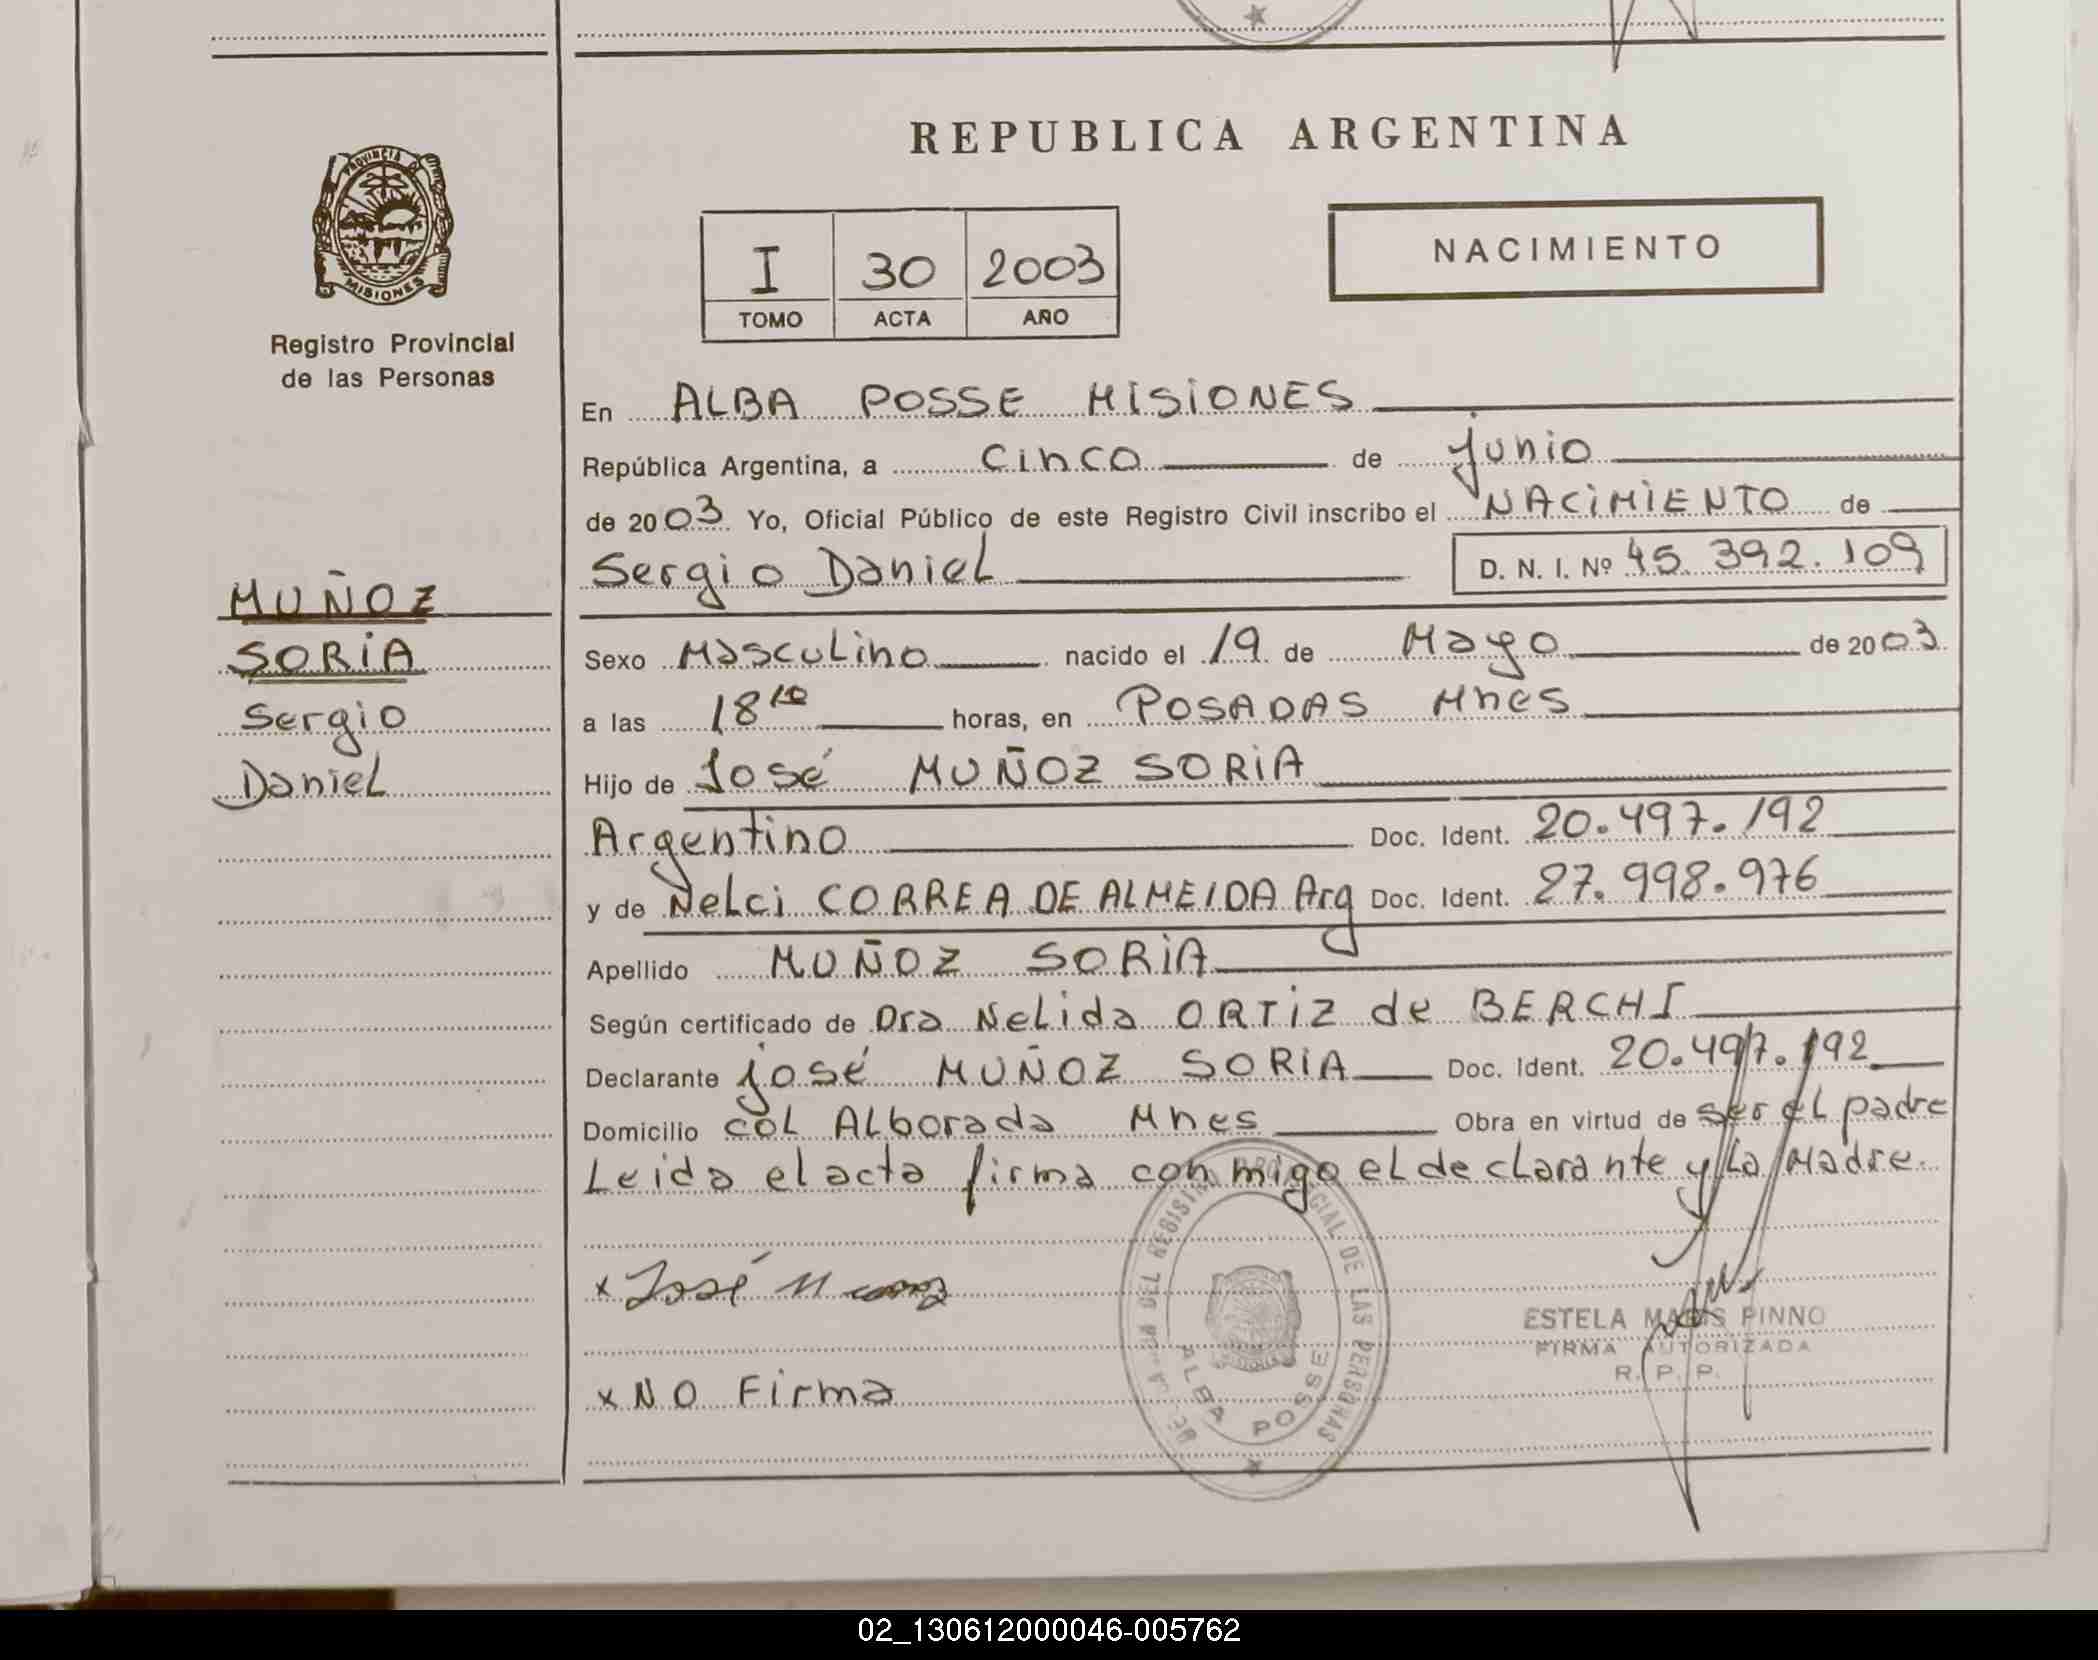 REPUBLICA ARGENTINA
PROVINCIA DE
MISIONES
Registro Provincial
de las Personas
I 30 2003
TOMO ACTA AÑO
NACIMIENTO
MUÑOZ
SORIA
Sergio
Daniel
En ALBA POSSE MISIONES
República Argentina, a cinco de junio
de 2003 Yo, Oficial Público de este Registro Civil inscribo el NACIMIENTO de
Sergio Daniel D. N. I. Nº 45.392.109
Sexo Masculino nacido el 19 de Mayo de 2003
a las 18 10 horas, en POSADAS Mnes
Hijo de José MUÑOZ SORIA
Argentino Doc. Ident. 20.497.192
y de Nelci CORREA DE ALMEIDA Arg Doc. Ident. 27.998.976
Apellido MUÑOZ SORIA
Según certificado de Dra Nelida ORTIZ de BERCHI
Declarante josé MUÑOZ SORIA Doc. Ident. 20.497.192
Domicilio col Alborada Mnes Obra en virtud de ser el padre
Leida el acta firma conmigo el declarante y la Madre.
x José Munoz
x NO Firma
DEL REGISTRO PROVINCIAL DE LAS PERSONAS
ALBA POSSE
ESTELA MARIS PINNO
FIRMA AUTORIZADA
R. P. P.
02_130612000046-005762